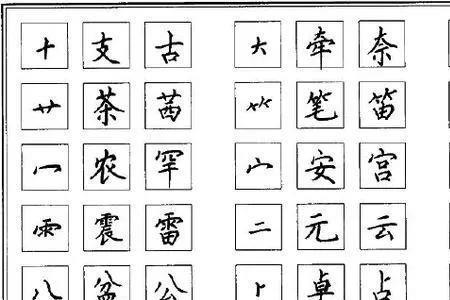 十 支 古 大 牵 奈
艹 茶 茜 𥫗 笔 笛
冖 农 罕 宀 安 宫
雨 震 雷 二 元 云
八 盆 公 卜 卓 占